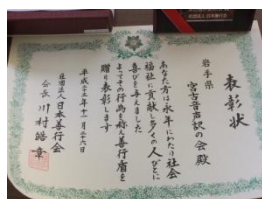 表彰状
岩手県
宮古音声訳の会殿
あなた方は永年にわたり社会
福祉に貢献し多くの人びとに
喜びを与えました
よってその行為を称え善行賞を
贈り表彰します
平成二十五年十一月二十六日
社団法人日本善行会
会長川村皓章